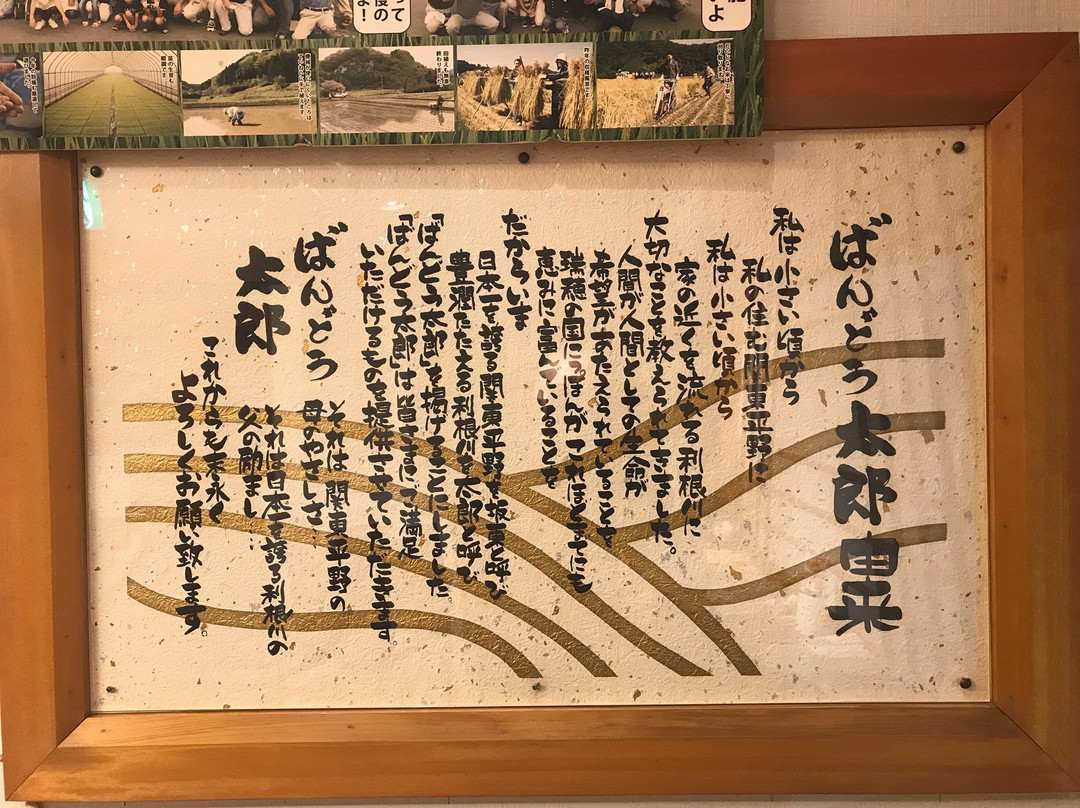 ばんどう太郎由来
私は小さい頃から
私の住む関東平野に
私は小さい頃から
家の近くを流れる利根川に
大切なことを教えられてきました。
人間が人間としての生命が
希望があたえられていることを
瑞穂の国にっぽんがこれほどまでにも
恵みに富んでいることを
だからいま
日本一を誇る関東平野を坂東と呼び
豊潤たたえる利根川を太郎と呼び
「ばんどう太郎」を掲げることにしました
「ばんどう太郎」は皆さまにご満足
いただけるものを提供させていただきます。
ばんどう
それは関東平野の
母のやさしさ…
太郎
それは日本一を誇る利根川の
父の励まし…
これからも末永く
よろしくお願い致します。